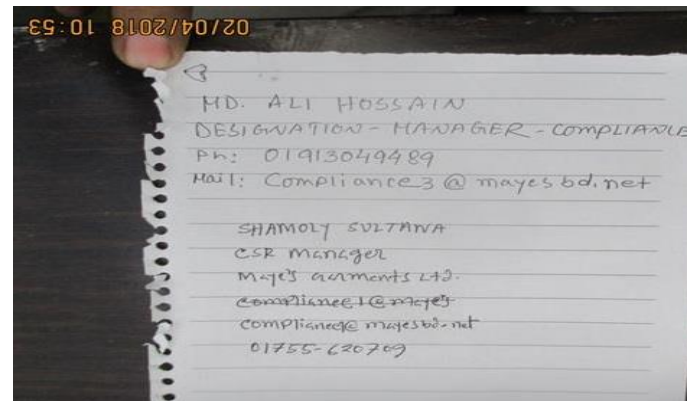 02/04/2018 10:53
MD. ALI HOSSAIN
DESIGNATION - MANAGER - COMPLIANCE
Ph: 01913049489
Mail: Compliance3@mayesbd.net
SHAMOLY SULTANA
CSR Manager
Maye's Garments Ltd.
compliance1@mayes
compliance@mayesbd.net
01755-620709